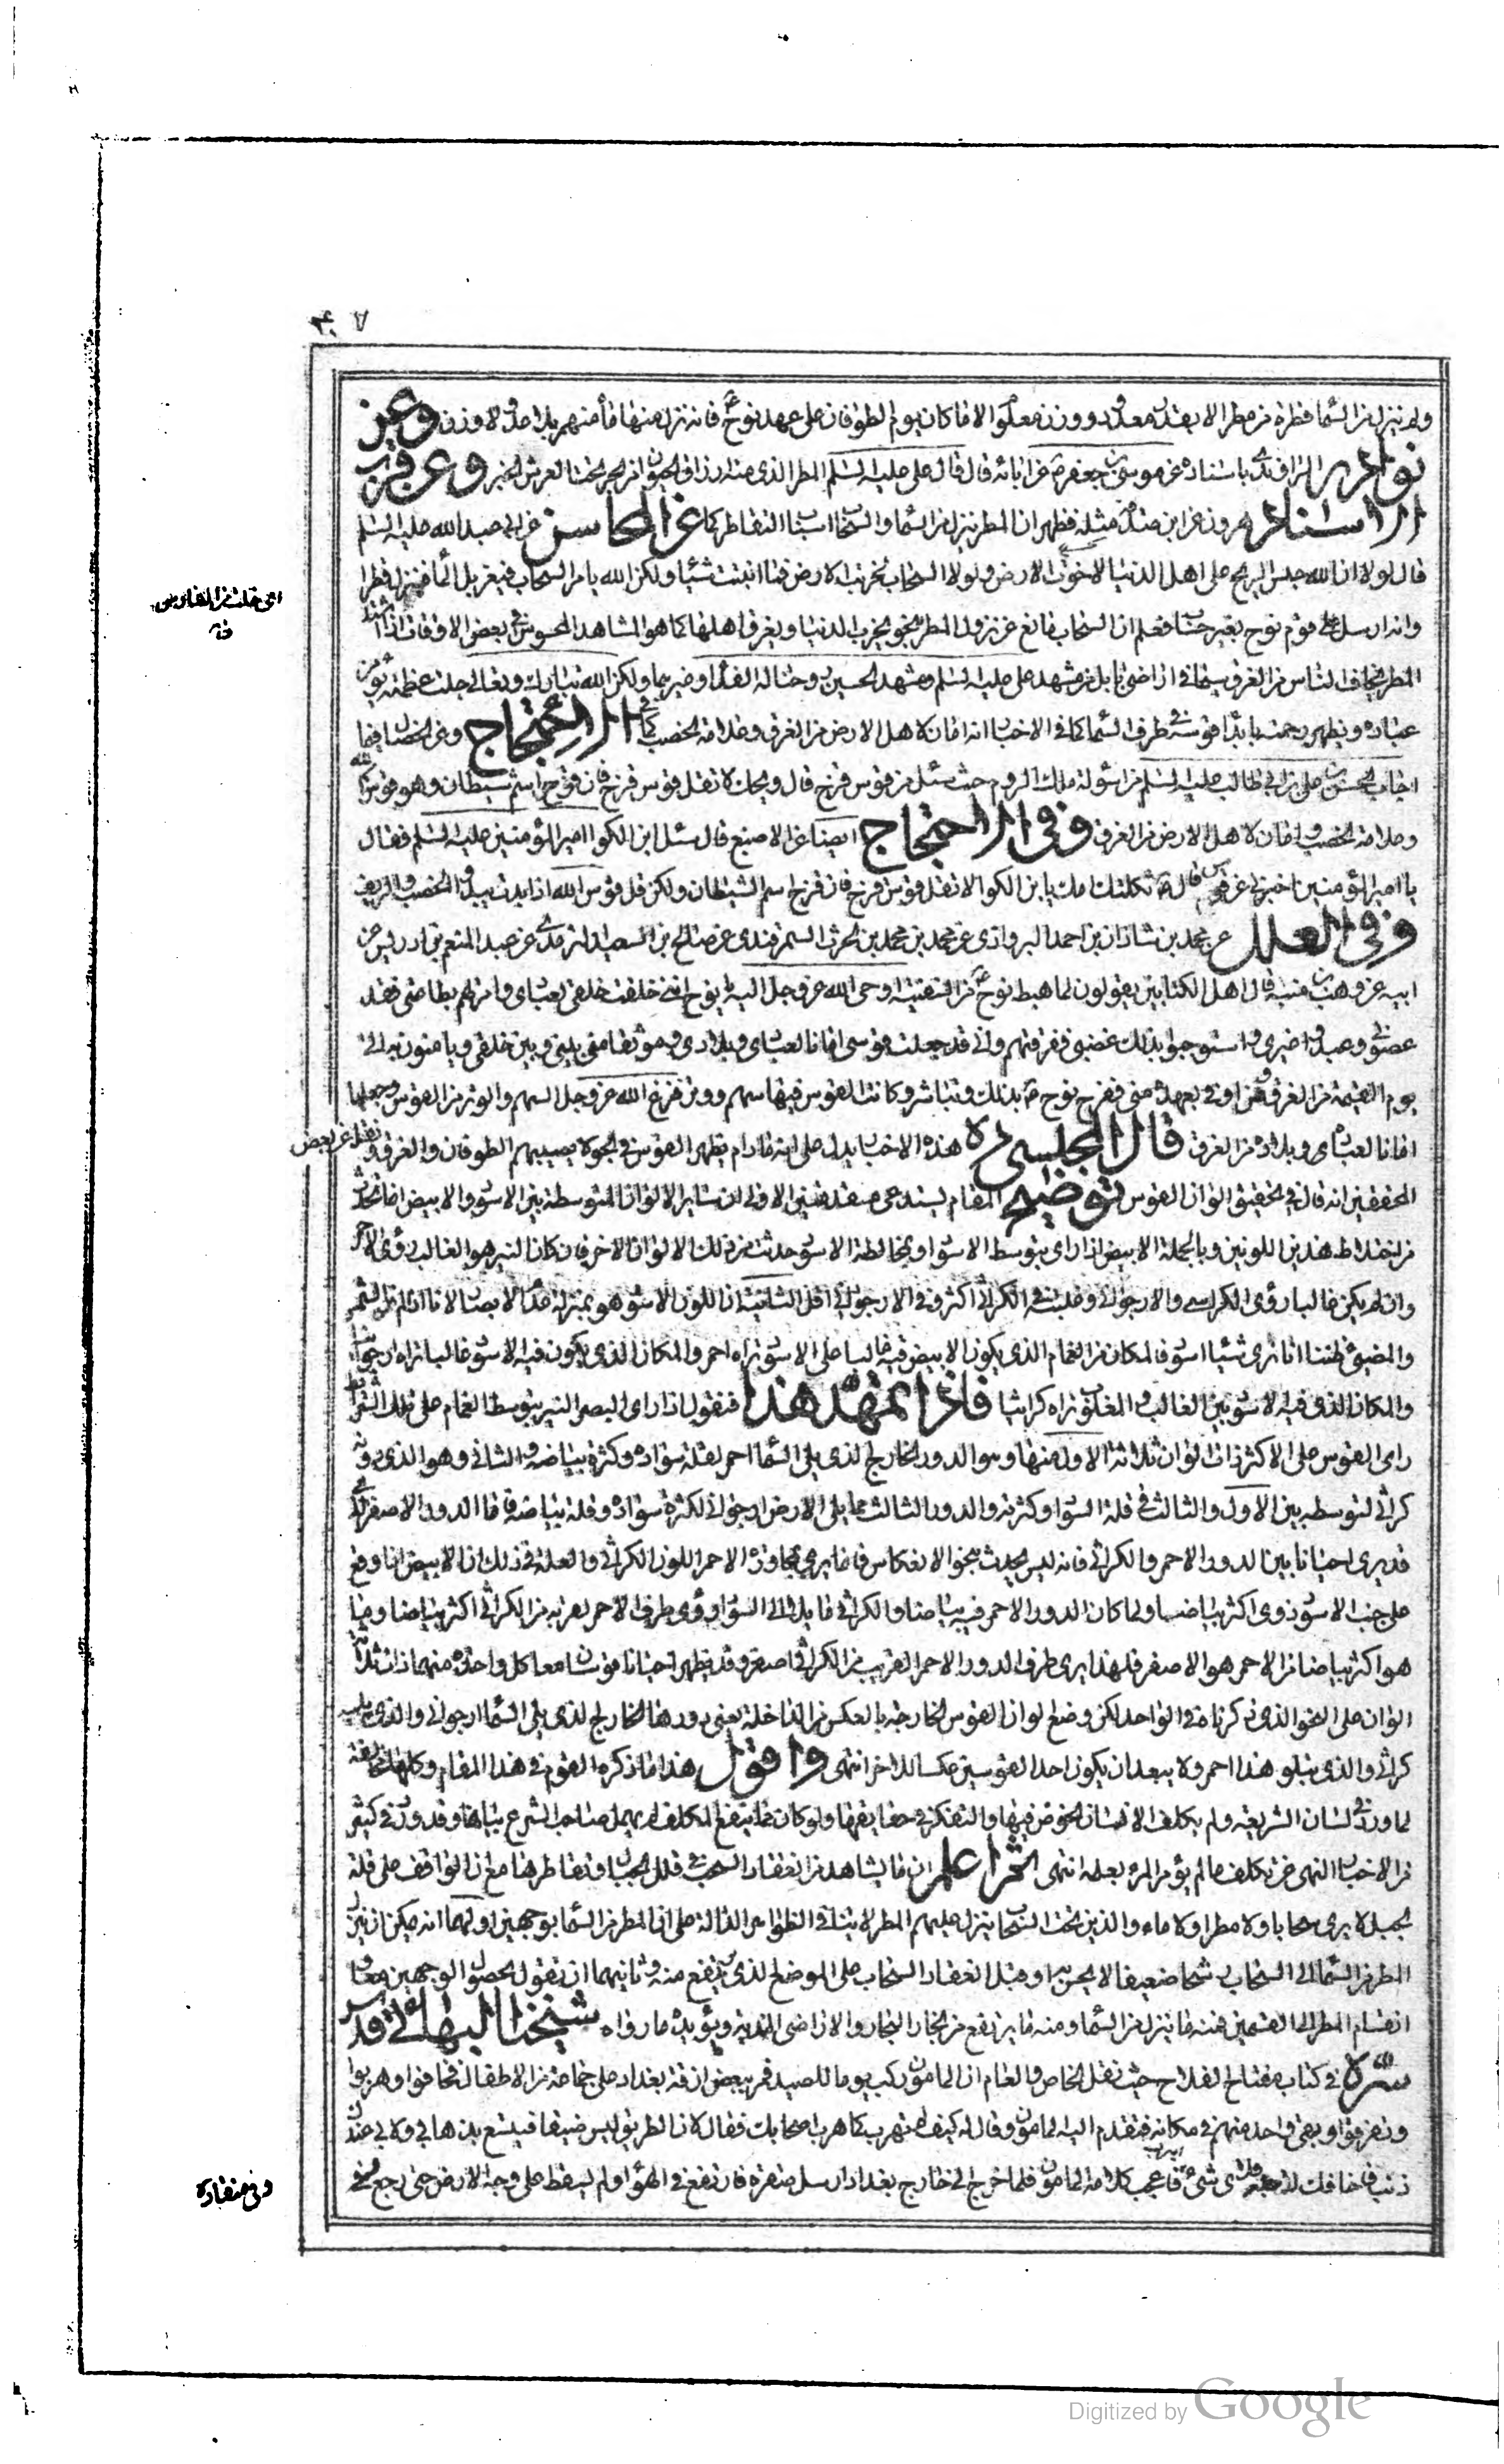 ٣٠٧
ولم ينزل من السماء قطرة من مطر الا بقدر معدود ووزن معلوم الا ما كان يوم الطوفان على عهد نوح ع فانه نزل منها ماء منهمر بلا عدد ولا وزن وعن
نوادر الراوندى باسناده عن موسى بن جعفر ع عن ابائه قال قال على عليه السلم المطر الذى منه ارزاق الحيوان من بحر تحت العرش الخبر وعن قرب
الاسناد هرون عن ابن صدقة مثله فظهر ان المطر ينزل من السماء والسحاب اسباب التقاطر كما عن المحاسن عن ابى عبد الله عليه السلم
قال لولا ان الله حبس الريح على اهل الدنيا لاخوت الارض ولولا السحاب لخربت الارض فما انبتت شيئا ولكن الله يامر السحاب فيغربل الماء فينزل قطرا
وانه ارسل على قوم نوح بغير سحاب فعلم ان السحاب مانع عن نزول المطر بنحو يخرب الدنيا ويغرق اهلها كما هو المشاهد المحسوس فى بعض الاوقات اذا اشتد
المطر يخاف الناس من الغرق سيما فى اراضى بابل من مشهد على عليه السلم ومشهد الحسين ع وحتاله الفداء وغيرهما ولكن الله تبارك وتعالى جلت عظمته يؤمن
عباده ويظهر رحمته بابداء قوسه فى طرف السماء كما فى الاخبار انه امان لاهل الارض من الغرق وعلامة الخصب كما فى الاحتجاج وعن الخصال فيما
اجاب الحسن بن على بن ابى طالب عليه السلم من اسولة ملك الروم حيث سئل من قوس قزح قال ويحك لا تقل قوس قزح فان قزح اسم شيطان وهو قوس الله
وعلامة الخصب وامان لاهل الارض من الغرق وفى الاحتجاج ايضا عن الاصبغ قال سئل ابن الكوا امير المؤمنين عليه السلم فقال
يا امير المؤمنين اخبرنى عن قوس قزح قال ع ثكلتك امك يا بن الكوا لا تقل قوس قزح فان قزح اسم الشيطان ولكن قل قوس الله اذا بدت يبدو الخصب والريف
وفى العلل عن محمد بن شاذان بن احمد البروازى عن محمد بن محمد بن الحرث السمرقندى عن صالح بن السعيد الترمدى عن عبد المنعم بن ادريس عن
ابيه عن وهب بن منبه قال اهل الكتابين يقولون لما هبط نوح ع من السفينة اوحى الله عز وجل اليه يا نوح اننى خلقت خلقى لعبادتى وامرتهم بطاعتى فقد
عصونى وعبدوا غيرى واستوجبوا بذلك غضبى فغرقتهم وانى قد جعلت قوسى امانا لعبادى وبلادى وموثقا منى بينى وبين خلقى ويامنون به الى
يوم القيمة من الغرق ومن اوفى بعهده منى ففرح نوح ع بذلك وتباشر وكانت القوس فيها سهم ووتر فنزع الله عز وجل السهم والوتر من القوس وجعلها
امانا لعباده وبلاده من الغرق قال المجلسى ره هذه الاخبار يدل على انه مادام يظهر القوس فى الجو لا يصيبهم الطوفان والغرق ونقل عن بعض
المحققين انه قال فى تحقيق الوان القوس توضيح المقام يستدعى مقدمتين الاولى ان ساير الالوان المتوسطة بين الاسود والابيض انما تحدث
من اختلاط هذين اللونين وبالجملة الابيض اذا راى بتوسط الاسود او بمخالطة الاسود حدثت من ذلك الالوان الاخر فان كان النير هو الغالب رؤى الاحمر
وان لم يكن غالبا رؤى الكراثى والارجوانى وغلبته فى الكراثى اكثر وفى الارجوانى اقل الثانية ان اللون الاسود هو بمنزلة عدم الابصار لانا اذا لم نر الشمس
والمضيئ ظننا انا نرى شيئا اسود فالمكان من الغمام الذى يكون الابيض فيه غالبا على الاسود نراه احمر والمكان الذى يكون فيه الاسود غالبا نراه ارجوانيا
والمكان الذى فيه الاسود بين الغالب والمغلوب نراه كراثيا فاذا تمهد هذا فنقول اذا راى البصر النير بتوسط الغمام على تلك الشرايط
راى القوس على الاكثر ذات الوان ثلاثة الاول منها وهو الدور الخارج الذى يلى السماء احمر لقلة سواده وكثرة بياضه والثانى وهو الذى دونه
كراثى لتوسطه بين الاول والثالث فى قلة السواد وكثرته والدور الثالث مما يلى الارض ارجوانى لكثرة سواده وقلة بياضه فاما الدور الاصفر الذى
قد يرى احيانا بين الدور الاحمر والكراثى فانه ليس يحدث بنحو الانعكاس فانما يرى بمجاوزه الاحمر اللون الكراثى والعلة فى ذلك ان الابيض اذا وقع
على جنب الاسود رؤى اكثر بياضا ولما كان الدور الاحمر فيه بياضا والكراثى مايل الى السواد رؤى طرف الاحمر لقربه من الكراثى اكثر بياضا وما
هو اكثر بياضا من الاحمر هو الاصفر فلهذا يرى طرف الدور الاحمر القريب من الكراثى اصفر وقد يظهر احيانا قوسان معا كل واحدة منهما ذات ثلاثة
الوان على النحو الذى ذكرناه فى الواحد لكن وضع الوان القوس الخارجة بالعكس من الداخلة يعنى دورها الخارج الذى يلى السماء ارجوانى والذى يليه
كراثى والذى يتلو هذا احمر ولا يبعد ان يكون احد القوسين عكسا للاخر انتهى واقول هذا ما ذكره القوم فى هذا المقام وكلها مخالفة
لما ورد فى لسان الشريعة ولم يكلف الانسان الخوض فيها والتفكر فى حقايقها ولو كان مما ينتفع المكلف لم يهمل صاحب الشرع بيانها وقد ورد فى كثير
من الاخبار النهى عن تكلف ما لم يؤمر المرء بعلمه انتهى ثم اعلم ان ما يشاهد من انعقاد السحب فى قلل الجبال وتقاطرها مع ان الواقف على قلة
الجبل لا يرى سحابا ولا مطرا ولا ماء والذين تحت السحاب ينزل عليهم المطر لا ينافى الظواهر الدالة على ان المطر من السماء بوجهين اولهما انه يمكن ان ينزل
المطر من السماء الى السحاب رشحا ضعيفا لا يحس به او قبل انعقاد السحاب على الموضع الذى يرتفع منه وثانيهما ان نقول بحصول الوجهين معا و
انقسام المطر الى القسمين فمنه ما ينزل من السماء ومنه ما يرتفع من بخار البحار والاراضى الندية ويؤيده ما رواه شيخنا البهائى قدس
سره فى كتاب مفتاح الفلاح حيث نقل الخاص والعام ان المامون ركب يوما للصيد فمر ببعض ازقة بغداد على جماعة من الاطفال فخافوا وهربوا
وتفرقوا وبقى واحد منهم فى مكانه فتقدم اليه المامون وقال له كيف لم تهرب كما هرب اصحابك فقال لان الطريق ليس ضيقا فيتسع بذهابى ولا بى عندك
ذنب فاخافك لاجله فلاى شئ اهرب فاعجب كلامه المامون فلما خرج الى خارج بغداد ارسل صقره فارتفع فى الهوا ولم يسقط على وجه الارض حتى رجع وفى
وفى منقاره
Digitized by Google